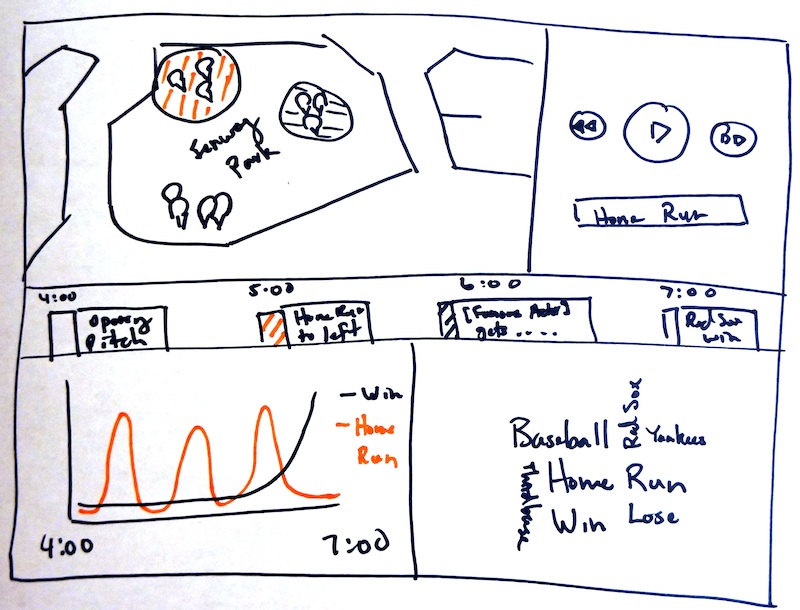 Fenway
Park
Home Run
4:00
5:00
6:00
7:00
Opening
Pitch
Home Run
to left
[Famous Actor]
gets ....
Red Sox
win
Win
Home
Run
4:00
7:00
Baseball
Red Sox
Yankees
Third base
Home Run
Win
Lose